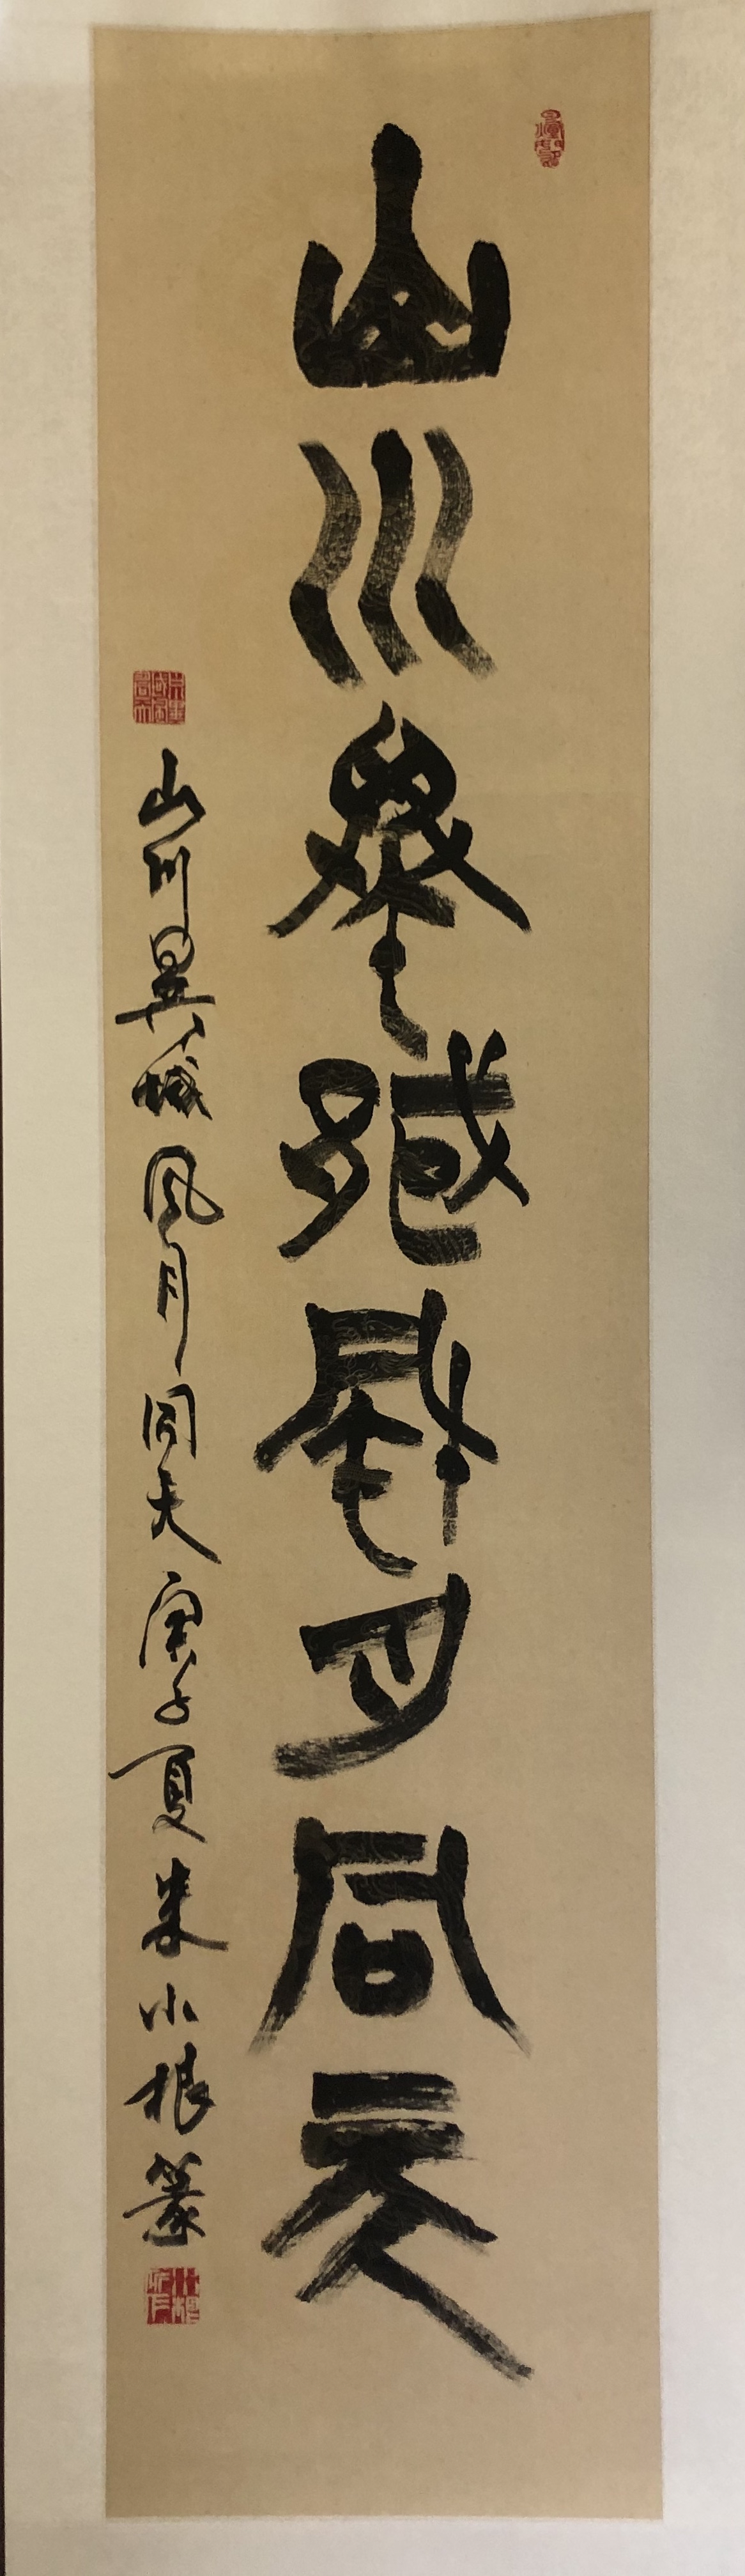 山川異域風月同天
山川異域風月同天庚子夏朱小根篆